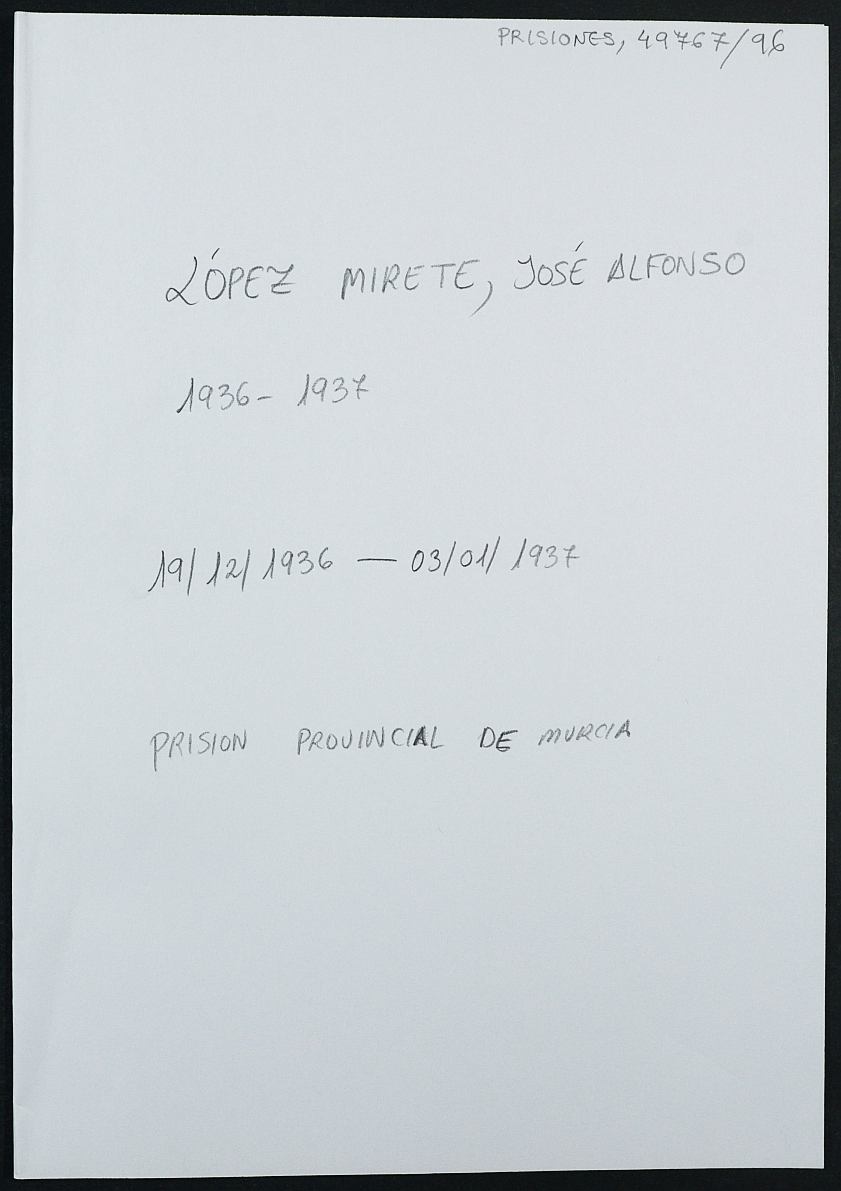 PRISIONES, 49767/96
LÓPEZ MIRETE, JOSÉ ALFONSO
1936- 1937
19/12/1936 — 03/01/1937
PRISION PROVINCIAL DE MURCIA